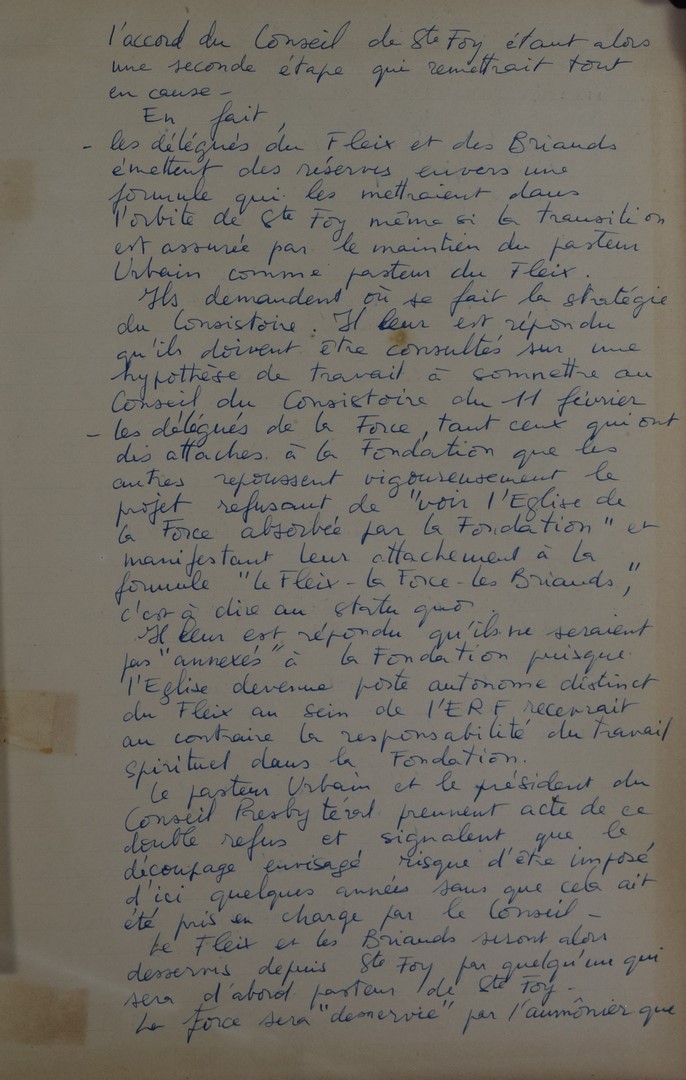 l'accord du Conseil de Ste Foy étant alors
une seconde étape qui remettrait tout
en cause -
En fait,
- les délégués du Fleix et des Briands
émettent des réserves envers une
formule qui les mettraient dans
l'orbite de Ste Foy même si la transition
est assurée par le maintien du pasteur
Urbain comme pasteur du Fleix.
Ils demandent où se fait la stratégie
du Consistoire. Il leur est répondu
qu'ils doivent être consultés sur une
hypothèse de travail à soumettre au
Conseil du Consistoire du 11 février
- les délégués de la Force, tant ceux qui ont
des attaches à la Fondation que les
autres repoussent vigoureusement le
projet refusant de "voir l'Eglise de
la Force absorbée par la Fondation" et
manifestant leur attachement à la
formule "le Fleix - la Force - les Briands,"
c'est à dire au statu quo.
Il leur est répondu qu'ils ne seraient
pas "annexés" à la Fondation puisque
l'Eglise devenue poste autonome distinct
du Fleix au sein de l'ERF recevrait
au contraire la responsabilité du travail
spirituel dans la Fondation.
Le pasteur Urbain et le président du
Conseil Presbytéral prennent acte de ce
double refus et signalent que le
découpage envisagé risque d'être imposé
d'ici quelques années sans que cela ait
été pris en charge par le Conseil -
Le Fleix et les Briands seront alors
desservis depuis Ste Foy par quelqu'un qui
sera d'abord pasteur de Ste Foy -
La Force sera "desservie" par l'aumônier que